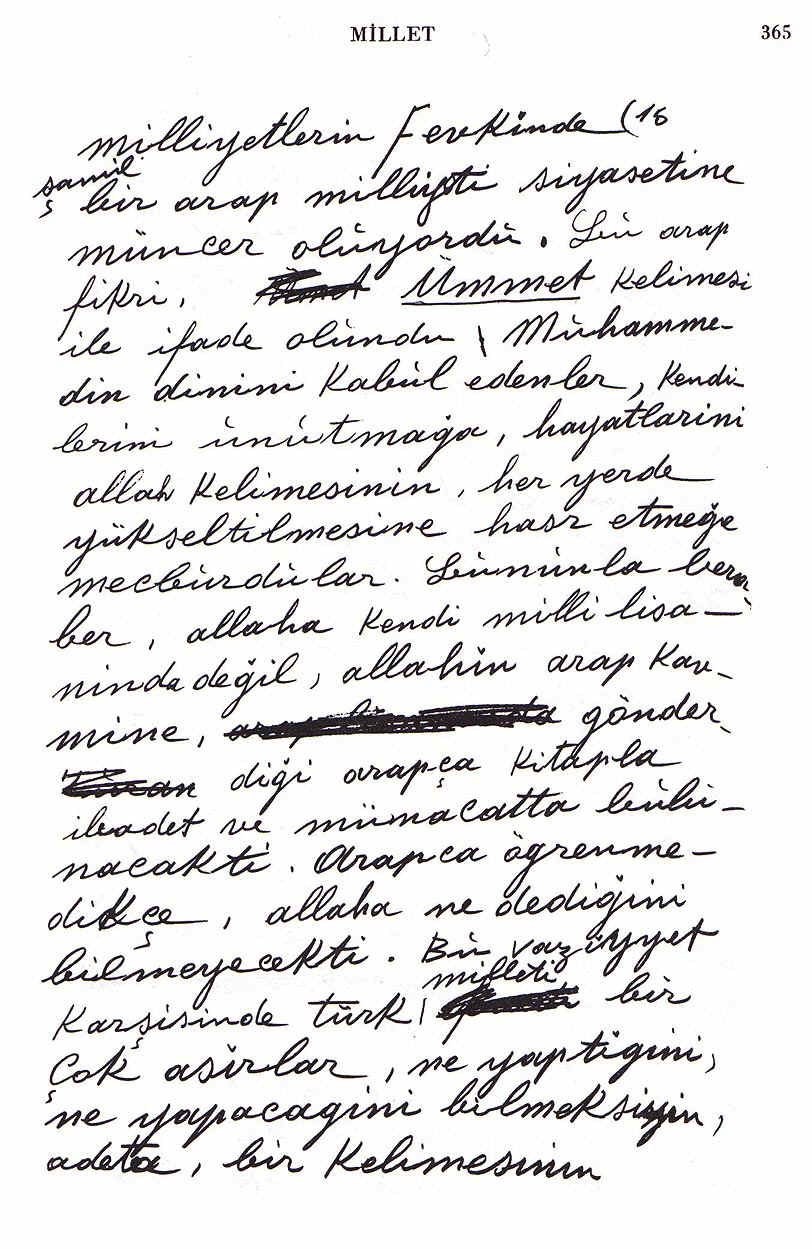 MİLLET 365
milliyetlerin fevkinde (18
şamil
bir arap milliyeti siyasetine
müncer oluyordu. Bu arap
fikri, Ümmet kelimesi
ile ifade olundu \ Muhamme-
din dinini kabul edenler, kendi-
lerini unutmağa, hayatlarini
allah kelimesinin, her yerde
yükseltilmesine hasr etmeğe
mecburdular. Bununla bera-
ber, allaha kendi milli lisa-
ninda değil, allahin arap kav-
mine, gönder-
diği arapça kitapla
ibadet ve münacatta bulu-
nacakti. Arapca öğrenme-
dikçe, allaha ne dediğini
bilmeyecekti. Bu vaziyyet
milleti,
karşisinde türk | bir
Çok asirlar, ne yaptigini,
ne yapacagini bilmeksiyin,
adeta, bir kelimesinin